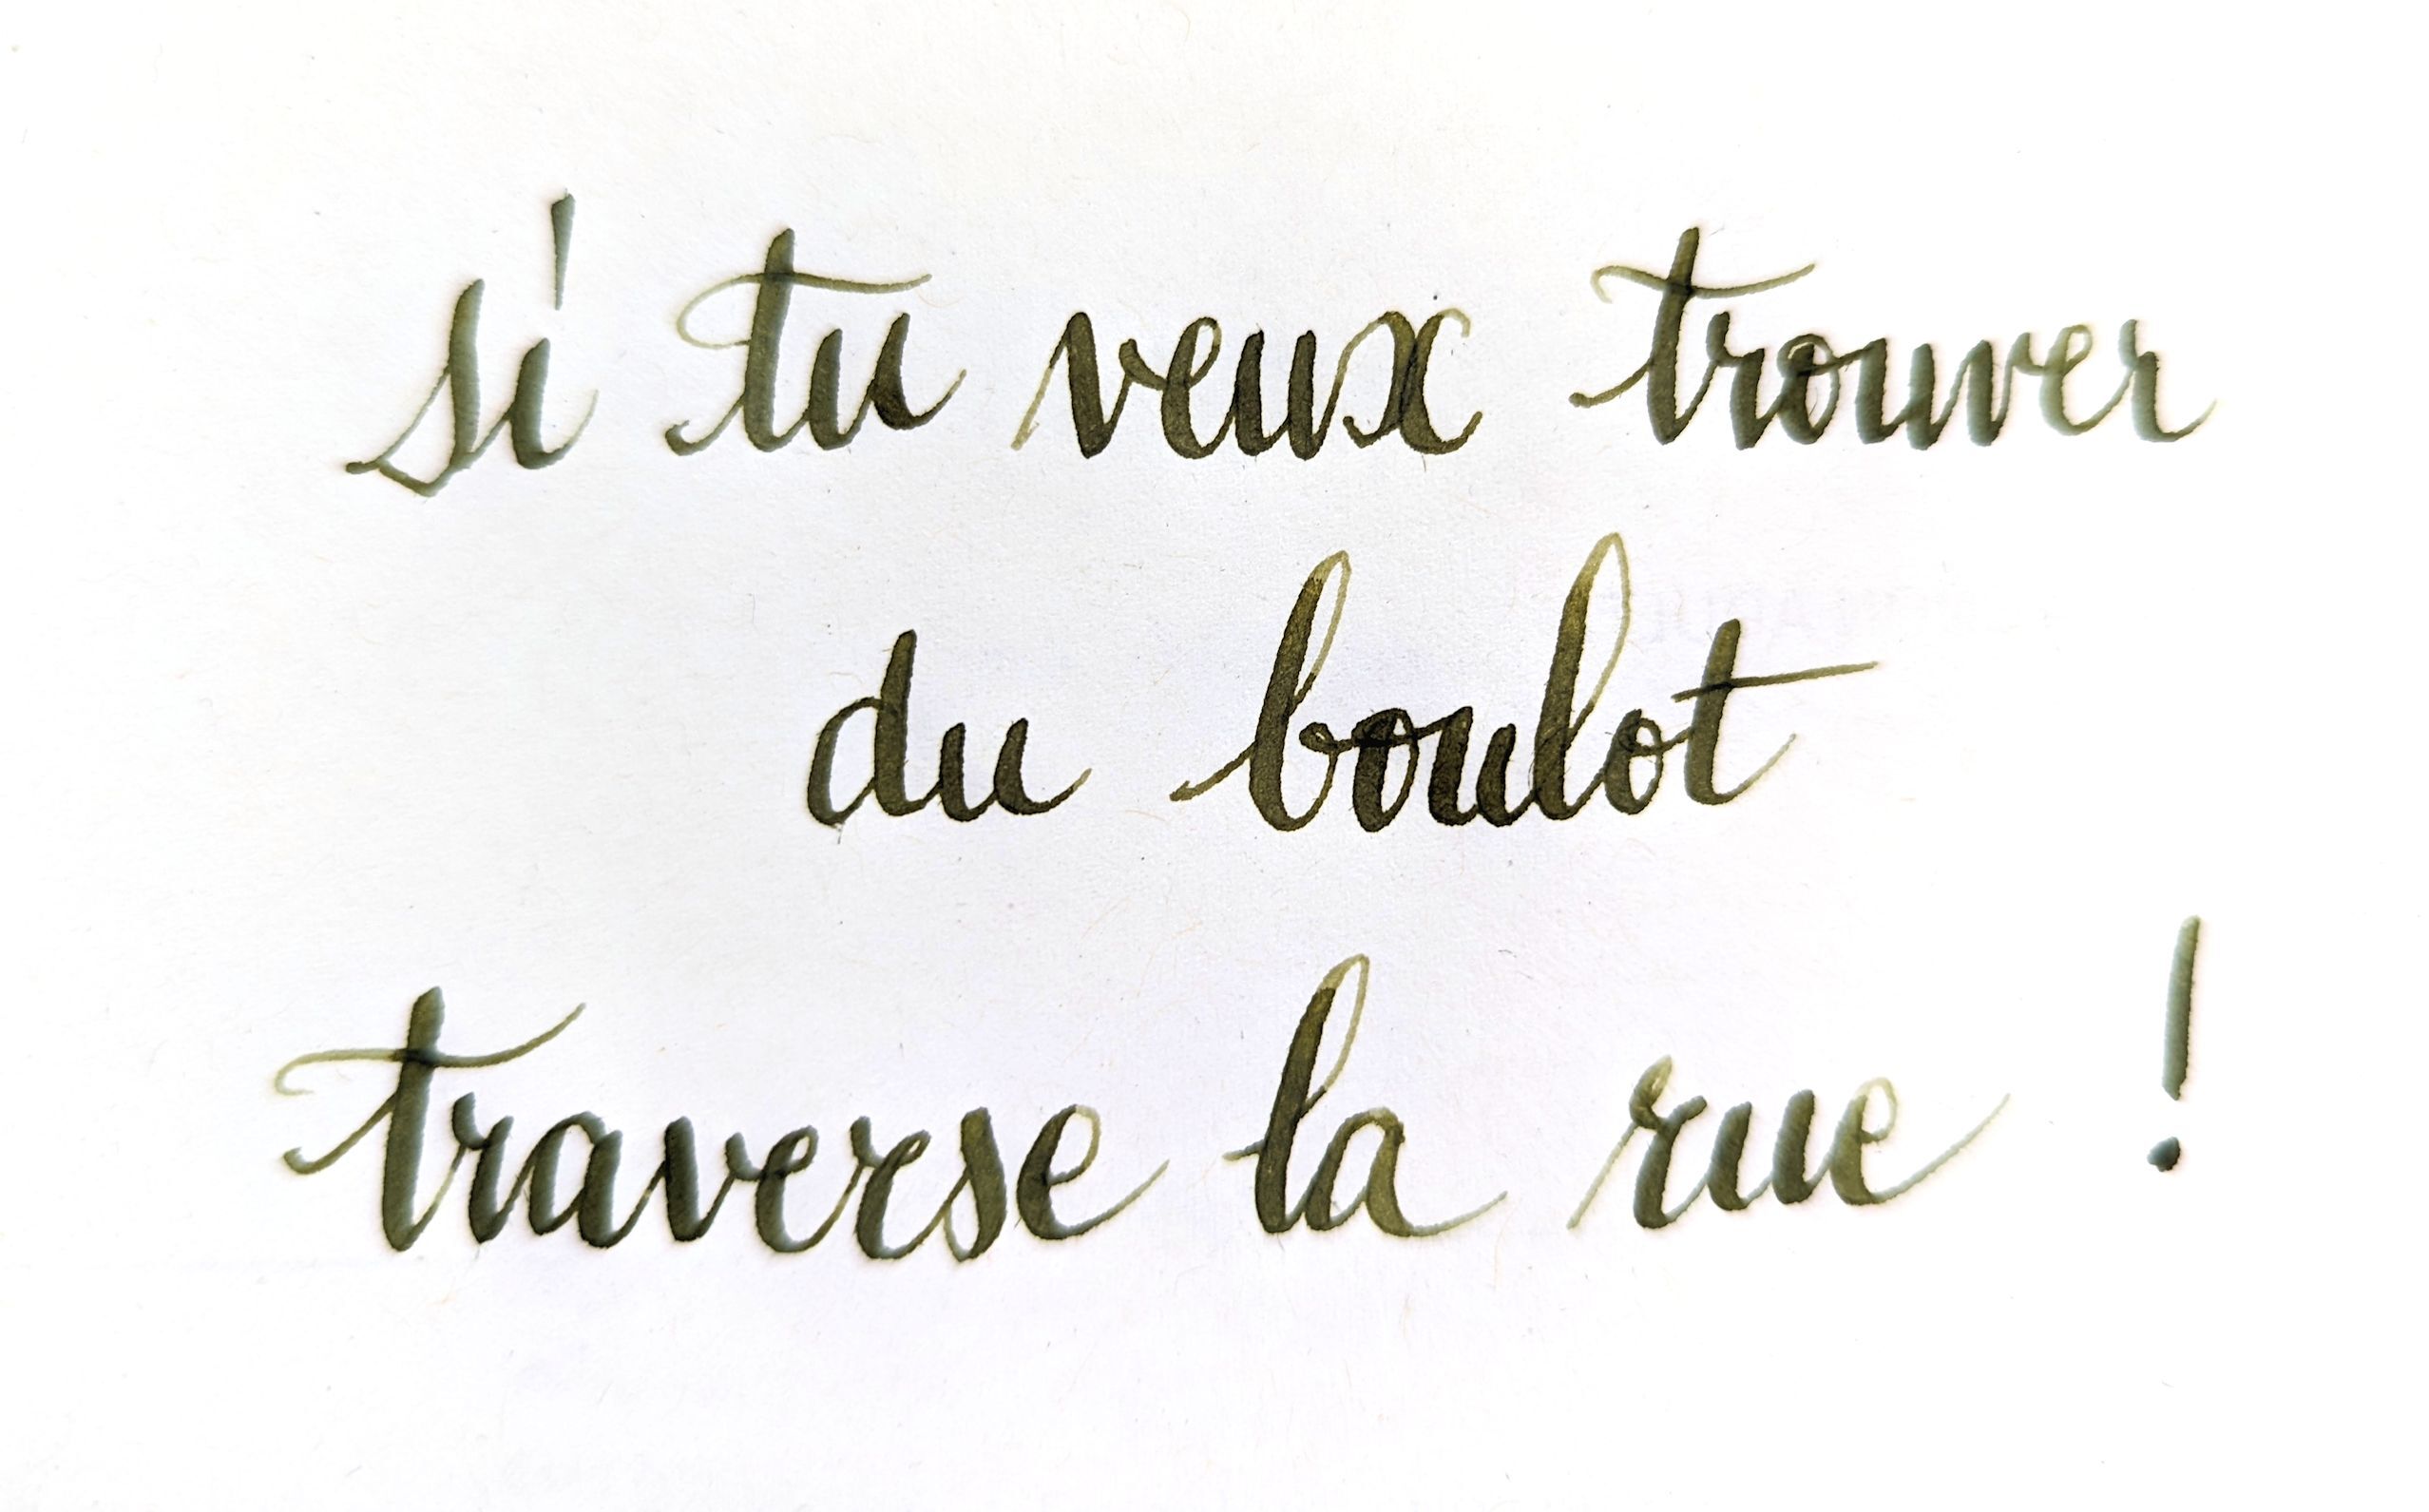 si tu veux trouver
du boulot
traverse la rue !